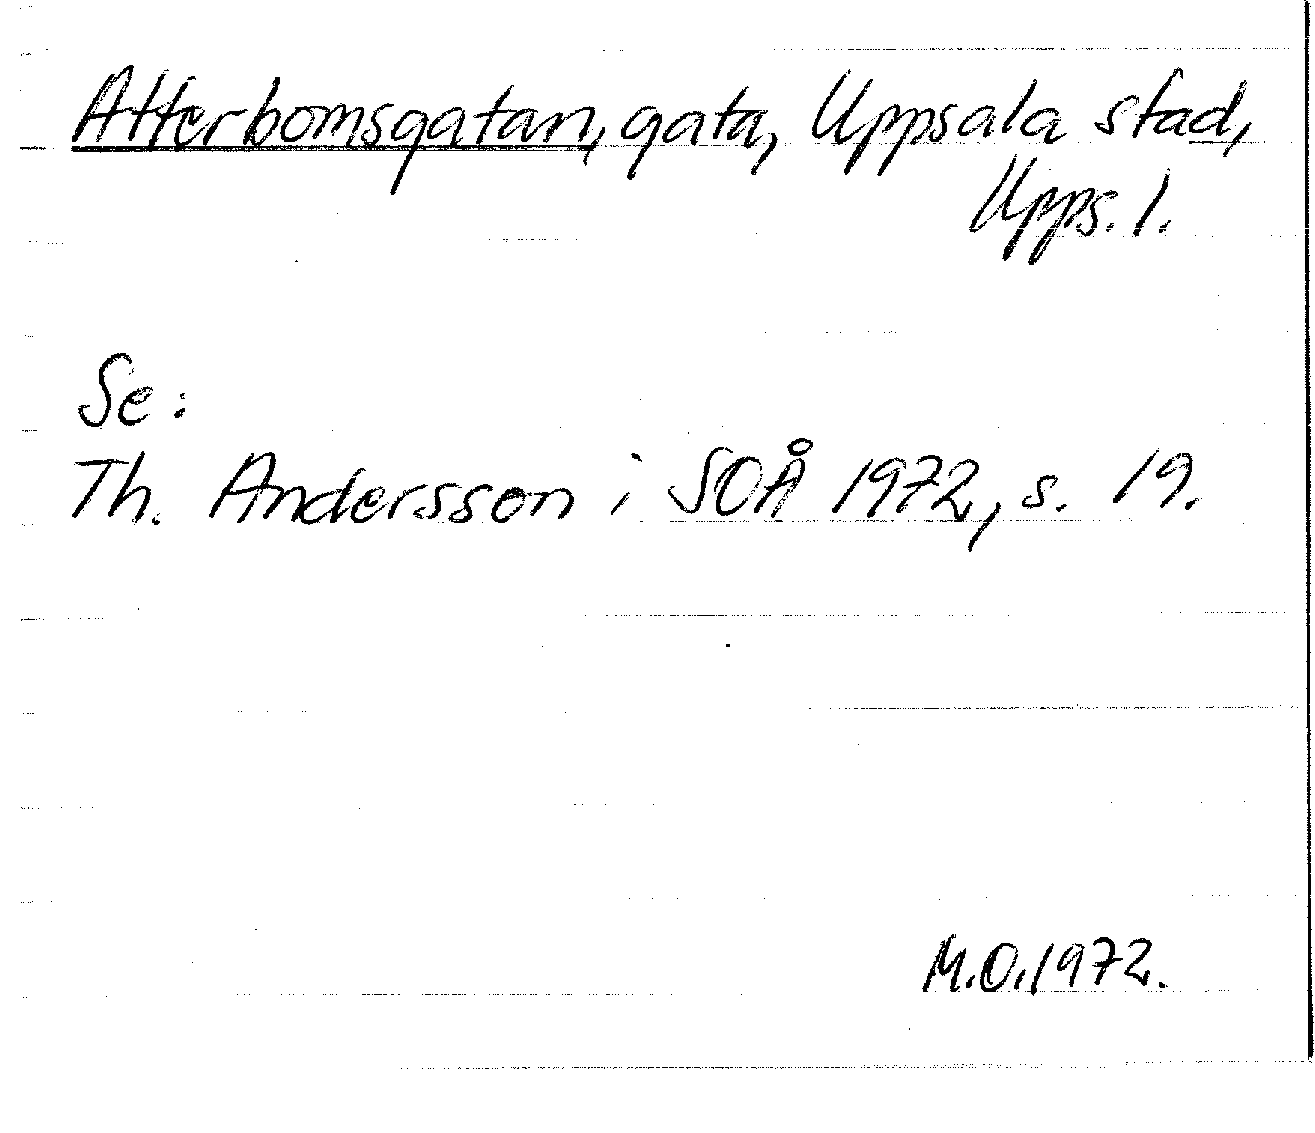 Atterbomsgatan, gata, Uppsala stad,
Upps. l.
Se:
Th. Andersson i SOÅ 1972, s. 19.
M.O. 1972.